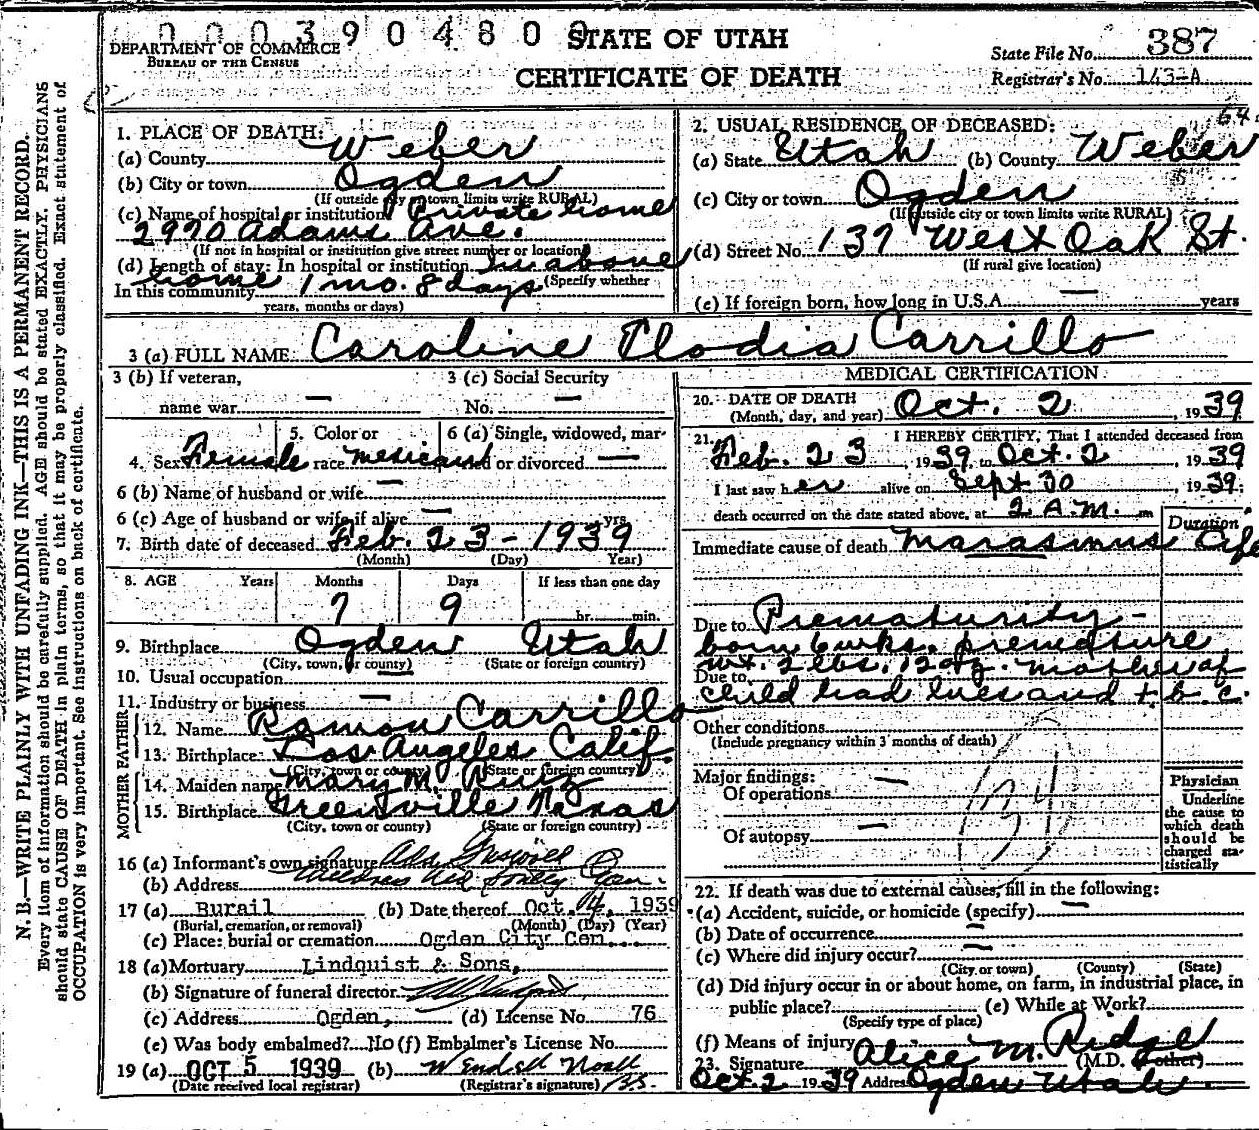 0003904809
DEPARTMENT OF COMMERCE
BUREAU OF THE CENSUS
STATE OF UTAH
CERTIFICATE OF DEATH
State File No. 387
Registrar's No. 143-A
64
N. B.—WRITE PLAINLY WITH UNFADING INK—THIS IS A PERMANENT RECORD.
Every item of information should be carefully supplied. AGE should be stated EXACTLY. PHYSICIANS
should state CAUSE OF DEATH in plain terms, so that it may be properly classified. Exact statement of
OCCUPATION is very important. See instructions on back of certificate.
1. PLACE OF DEATH:
(a) County Weber
(b) City or town Ogden
(If outside city or town limits write RURAL)
(c) Name of hospital or institution Private home
2970 Adams Ave.
(If not in hospital or institution give street number or location)
(d) Length of stay: In hospital or institution In above
home
(Specify whether
In this community 1 mo. 8 days
years, months or days)
2. USUAL RESIDENCE OF DECEASED:
(a) State Utah (b) County Weber
(c) City or town Ogden
(If outside city or town limits write RURAL)
(d) Street No. 137 West Oak St.
(If rural give location)
(e) If foreign born, how long in U.S.A. — years
3 (a) FULL NAME Caroline Clodia Carrillo
3 (b) If veteran, name war —
3 (c) Social Security No. —
4. Sex Female
5. Color or race Mexican
6 (a) Single, widowed, married or divorced —
6 (b) Name of husband or wife —
6 (c) Age of husband or wife if alive — yrs.
7. Birth date of deceased Feb. 23 - 1939
(Month) (Day) (Year)
8. AGE Years Months Days If less than one day
7 9 hr. min.
9. Birthplace Ogden Utah
(City, town, or county) (State or foreign country)
10. Usual occupation —
11. Industry or business —
FATHER
12. Name Ramon Carrillo
13. Birthplace Los Angeles Calif.
(City, town or county) (State or foreign country)
MOTHER
14. Maiden name Mary M. Ruiz
15. Birthplace Greenville Texas
(City, town or county) (State or foreign country)
16 (a) Informant's own signature
(b) Address
17 (a) Burail (b) Date thereof Oct. 1939
(Burial, cremation, or removal) (Month) (Day) (Year)
(c) Place: burial or cremation Ogden City Cem.
18 (a) Mortuary Lindquist & Sons,
(b) Signature of funeral director
(c) Address Ogden, (d) License No. 76
(e) Was body embalmed? No (f) Embalmer's License No.
19 (a) OCT 5 1939 (b) Wendell Noall
(Date received local registrar) (Registrar's signature)
MEDICAL CERTIFICATION
20. DATE OF DEATH
(Month, day, and year) Oct. 2, 1939
21. I HEREBY CERTIFY, That I attended deceased from
Feb. 23, 1939, to Oct. 2, 1939
I last saw her alive on Sept 30, 1939;
death occurred on the date stated above, at 2 A.M. m
Duration
Immediate cause of death Marasmus Life
Due to Prematurity -
born 6 wks. premature
wt. 2 lbs. 12 oz. Mother of
Due to
child had lues and t.b.c.
Other conditions
(Include pregnancy within 3 months of death)
Major findings:
Of operations —
Of autopsy —
Physician
Underline
the cause to
which death
should be
charged sta-
tistically
22. If death was due to external causes, fill in the following:
(a) Accident, suicide, or homicide (specify) —
(b) Date of occurrence —
(c) Where did injury occur? —
(City or town) (County) (State)
(d) Did injury occur in or about home, on farm, in industrial place, in
public place? (e) While at Work?
(Specify type of place)
(f) Means of injury
23. Signature Alice M. Ridge (M.D. other)
Oct 2 1939 Address Ogden Utah.